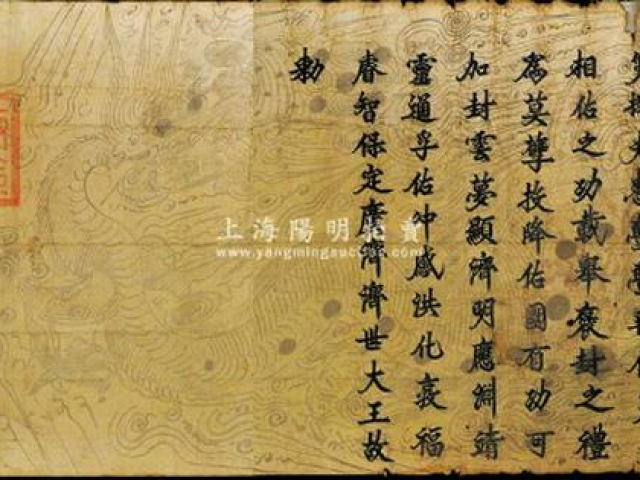 相佑之功載舉褒封之禮
為莫擘投降佑國有功可
加封雲夢顯濟明應淵靖
靈通孚佑仲感洪化衰福
睿智保定廣濟濟世大王故
勅
上海陽明拍賣
www.yangmingauction.com